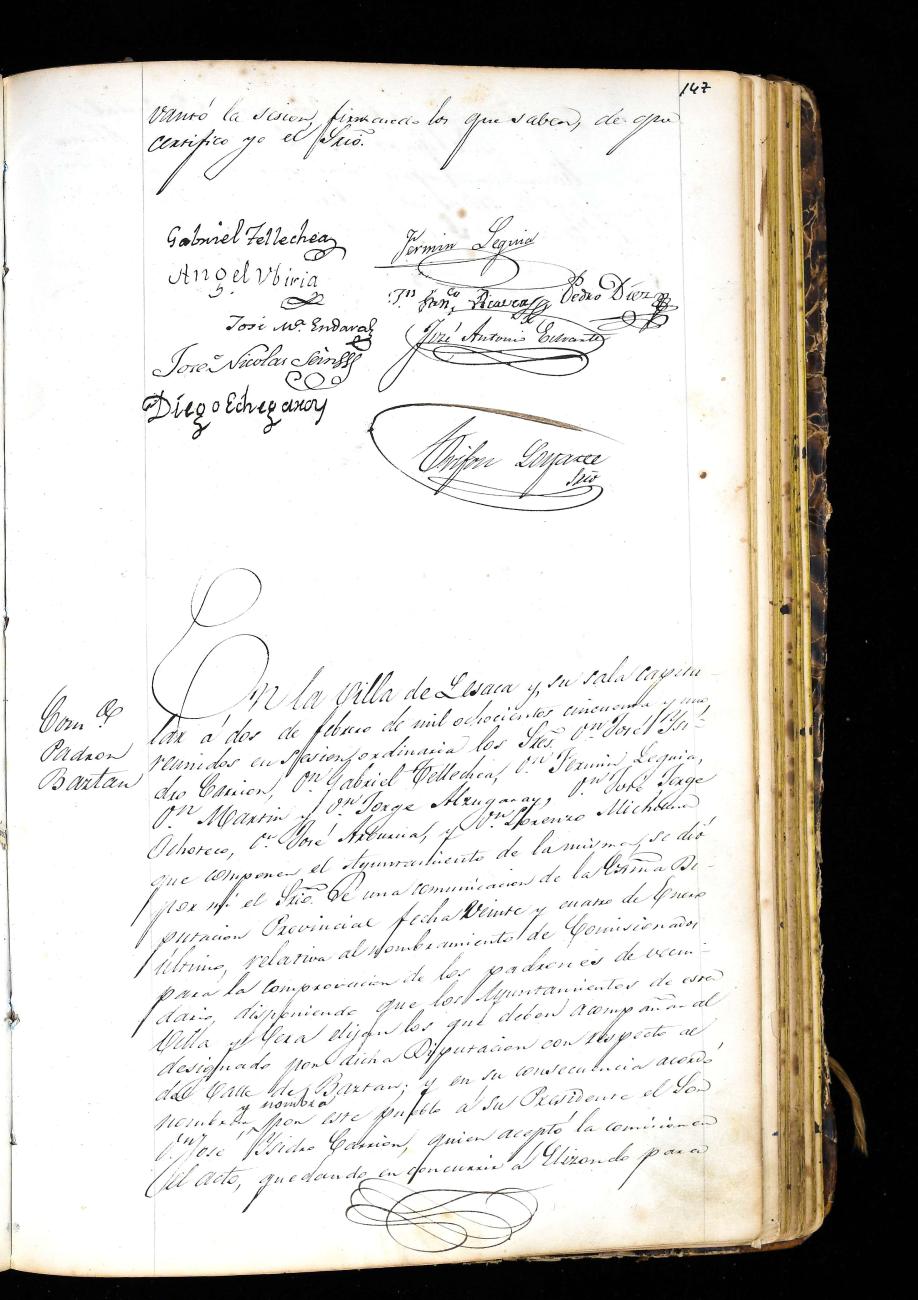 147
vantó la sesion, firmando los que saben, de que
certifico yo el Srio.
Gabriel Tellechea
Fermin Leguia
Angel Ubiria
Pedro Diez
José Mª Endara
José Antonio
Jose Nicolas
Diego Echegaray
Srio
En la Villa de Lesaca y su sala capitu-
lar á dos de febrero de mil ochocientos cincuenta y uno,
reunidos en sesion ordinaria los Sres. Dn José Isi-
dro Carrion, Dn Gabriel Tellechea, Dn Fermin Leguia,
Dn Martin y Dn Jorge Alzugaray, Dn José Jorge
Ochoteco, Dn José y Dn Lorenzo Michelena
que componen el Ayuntamiento de la misma, se dió
por mi el Srio. de una comunicacion de la Exma Di-
putacion Provincial fecha Veinte y cuatro de Enero
último, relativa al nombramiento de Comisionados
para la comprovacion de los padrones de vecin-
dario, disponiendo que los Ayuntamientos de esta
Villa y Vera elijan los que deben acompañar al
designado por dicha Diputacion con respecto al
del Valle de Baztan; y en su consecuencia acordó
nombrar y nombró por este pueblo á su Presidente el Sor
Dn José Isidro Carrion, quien aceptó la comision en
el acto, quedando en concurrir a Elizondo para
Com on
Padron
Baztan